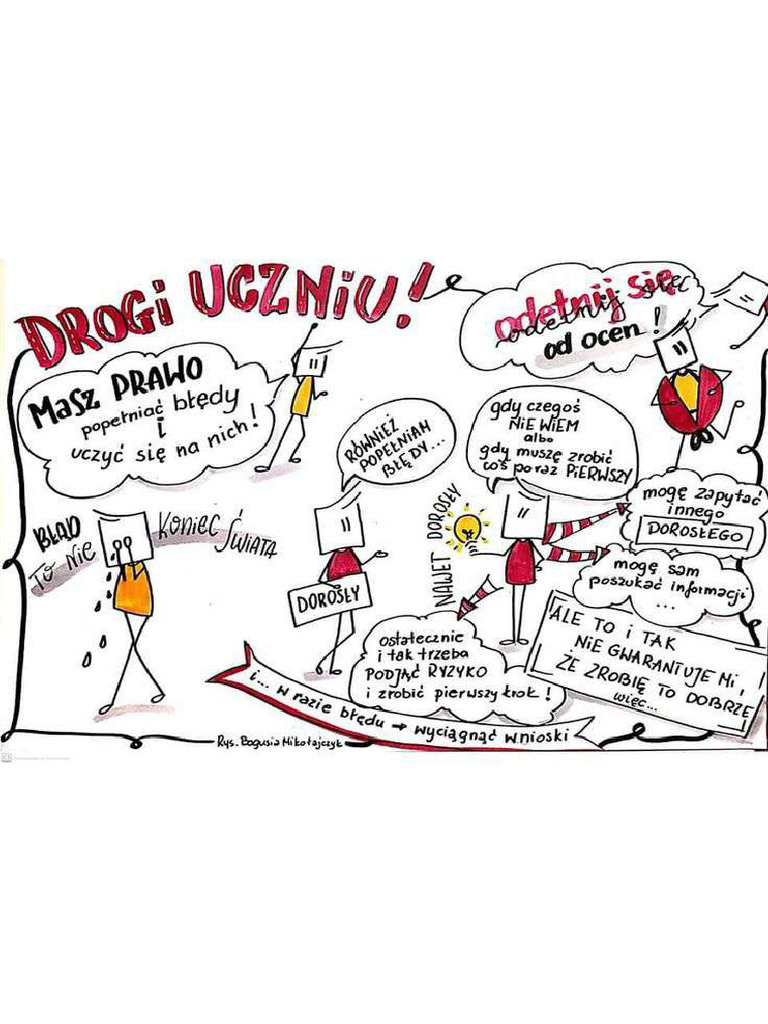 DROGI UCZNIU!
odetnij się
od ocen!
MASZ PRAWO
popełniać błędy
i
uczyć się na nich!
BŁĄD
TO NIE
KONIEC ŚWIATA
RÓWNIEŻ
POPEŁNIAM
BŁĘDY...
DOROSŁY
NAWET DOROSŁY
gdy czegoś
NIE WIEM
albo
gdy muszę zrobić
coś po raz PIERWSZY
mogę zapytać
innego
DOROSŁEGO
mogę sam
poszukać informacji
...
ALE TO I TAK
NIE GWARANTUJE MI,
ŻE ZROBIĘ TO DOBRZE
więc...
ostatecznie
i tak trzeba
PODJĄĆ RYZYKO
i zrobić pierwszy krok!
i... w razie błędu → wyciągnąć wnioski
Rys. Bogusia Mikołajczyk